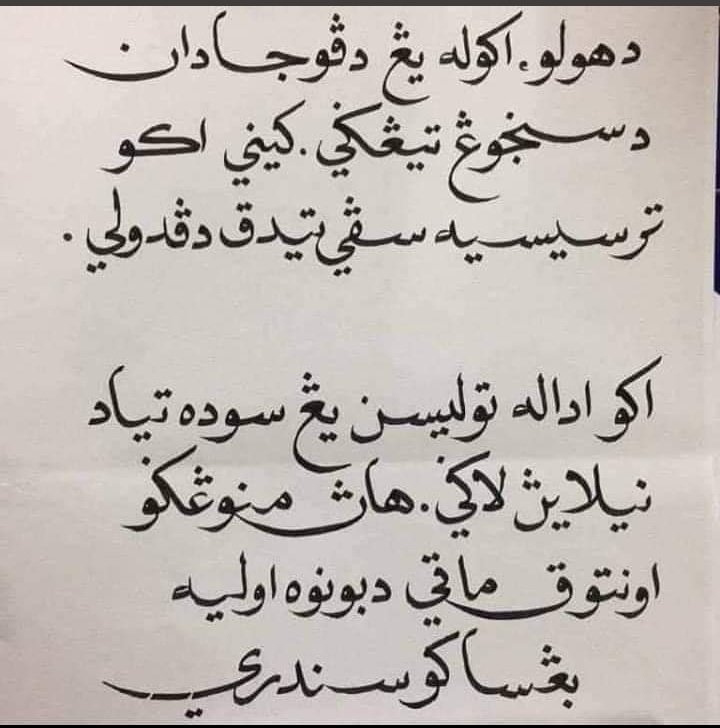 دهولو، اكوله يڠ دڤوجا دان
دسنجوڠ تيڠݢي. كيني اكو
ترسيسيه سڤرتي تيدق دڤدولي.
اكو اداله توليسن يڠ سوده تياد
نيلاين لاݢي. هاڽ منوڠݢو
اونتوق ماتي دبونوه اوليه
بڠساكو سنديري